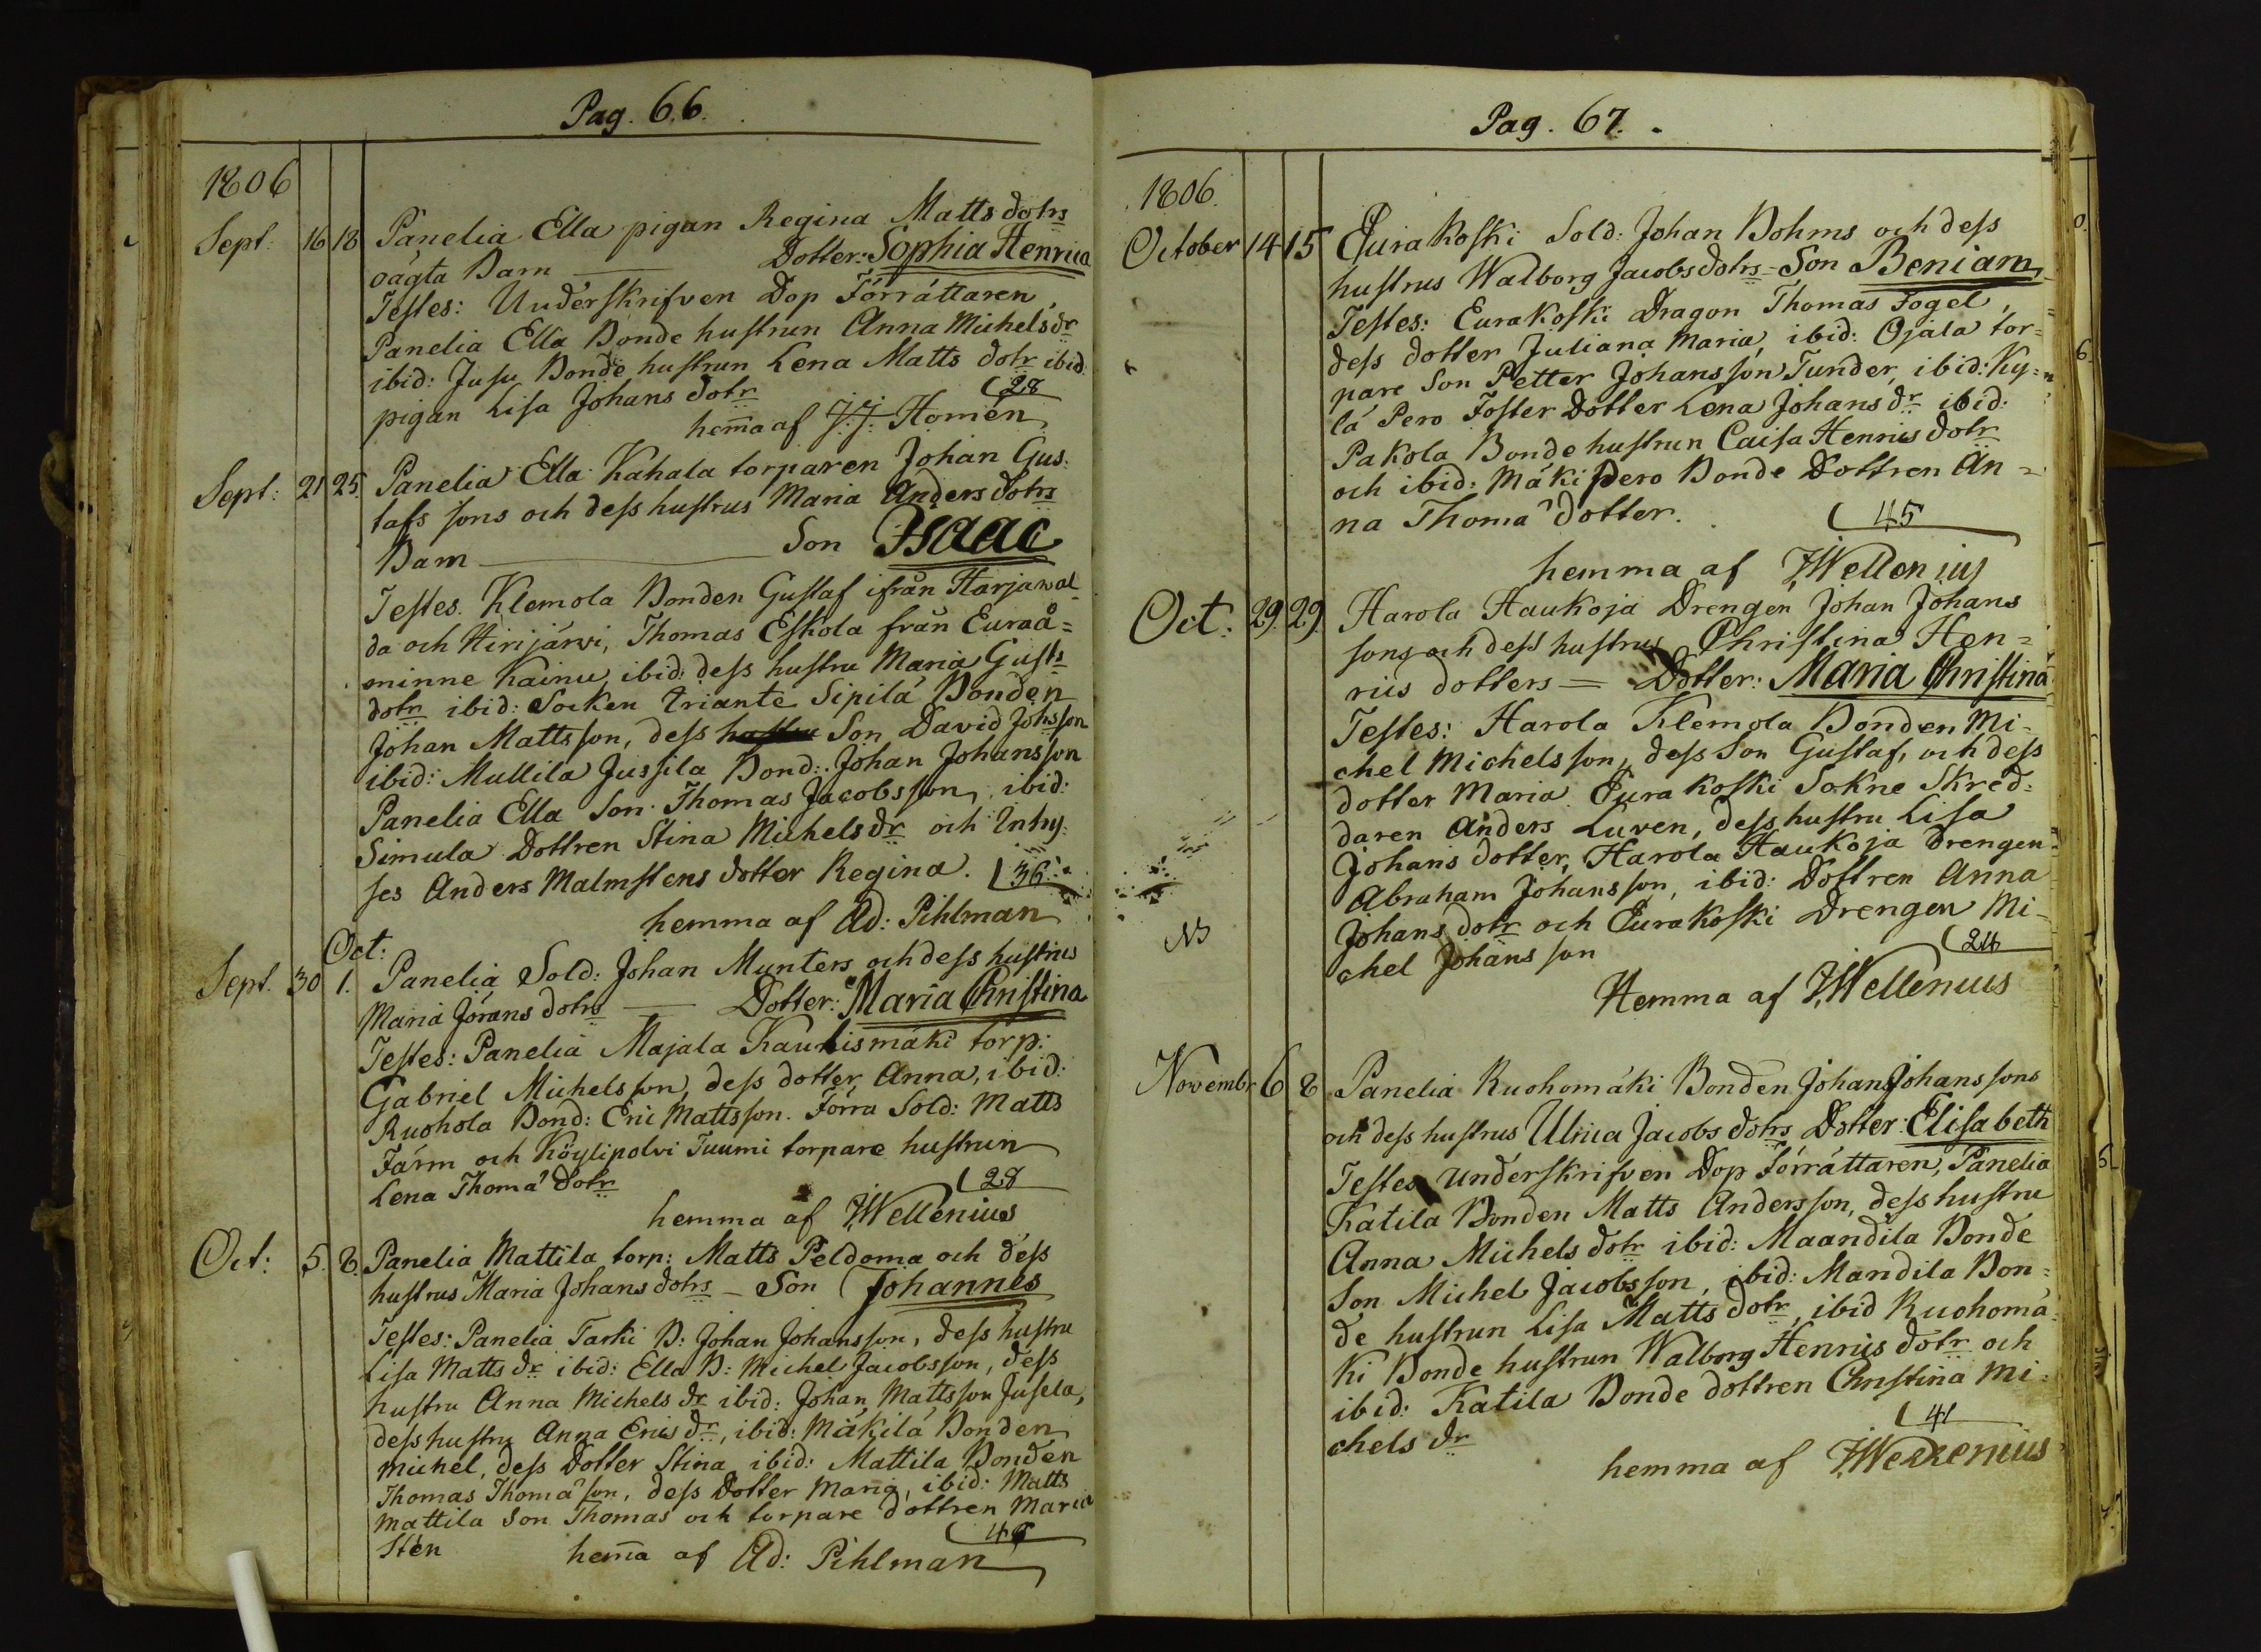 Pag. 66.
1806
Sept: 16 18 Panelia Ella pigan Regina Matts dotrs
oägta Barn — Dotter: Sophia Henrica
Testes: Underskrifven Dop Förrättaren,
Panelia Ella Bonde hustrun Anna Michelsdr
ibid: Jusu Bonde hustrun Lena Matts dotr ibid:
pigan Lisa Johans dotr (28
hem̄a af J:J: Homén
Sept: 21 25 Panelia Ella Kahala torparen Johan Gus-
tafs sons och dess hustrus Maria Anders dotrs
Barn — Son Isaac
Testes. Klemola Bonden Gustaf ifrån Harjawal-
da och Hirijärvi, Thomas Eskola från Euraå=
minne Kainu, ibid: dess hustru Maria Gusts
dotr ibid: Socken Eriante Sipilä Bonden
Johan Mattsson, dess hustru Son David Johsson
ibid: Mullila Jussila Bond: Johan Johansson
Panelia Ella Son Thomas Jacobsson, ibid:
Simula Dottren Stina Michelsdr och Inhy-
ses Anders Malmstens dotter Regina. (36
hemma af Ad: Pihlman
Oct:
Sept. 30 1. Panelia Sold: Johan Munters och dess hustrus
Maria Jörans dotrs — Dotter: Maria Christina
Testes: Panelia Majala Kaukismäki torp:
Gabriel Michelsson, dess dotter Anna, ibid:
Ruohola Bond: Eric Mattsson. Förra Sold: Matts
Färm och Köylipolvi Tuumi torpare hustrun
Lena Thomæ dotr (28
hemma af J,Wellenius
Oct: 5. 8. Panelia Mattila torp: Matts Peldoma och dess
hustrus Maria Johans dotrs – Son Johannes
Testes: Panelia Tarki B: Johan Johansson, dess hustru
Lisa Matts dr ibid: Ella B: Michel Jacobsson, dess
hustru Anna Michels dr ibid: Johan Mattsson Jusela,
dess hustru Anna Erics dr, ibid: Mäkilä Bonden
Michel, dess Dotter Stina ibid: Mattila Bonden
Thomas Thomæ son, dess Dotter Maria, ibid: Matts
Mattila Son Thomas och torpare dottren Maria
Stén (46
hem̄a af Ad: Pihlman
Pag. 67.
1806.
October 14 15 Eurakoski Sold: Johan Bohms och dess
hustrus Walborg Jacobs dotrs = Son Beniam
Testes: Eurakoski Dragon Thomas Fogel,
dess dotter Juliana Maria, ibid: Ojala tor=
pare Son Petter Johansson Tunder, ibid: Ky=
lä Pero Foster Dotter Lena Johans dr ibid:
Pakola Bonde hustrun Caisa Henrics dotr
och ibid: Mäki Pero Bonde Dottren An=
na Thomæ dotter. (45
hemma af J,Wellenius
Oct: 29. 29. Harola Haukoja Drengen Johan Johans
sons och dess hustrus Christina Hen=
rics dotters = Dotter: Maria Christina
Testes: Harola Klemola Bonden Mi-
chel Michelsson, dess Son Gustaf, och dess
dotter Maria. Eurakoski Sokne Skred-
daren Anders Luren, dess hustru Lisa
Johans dotter, Harola Haukoja Drengen
Abraham Johansson, ibid: Dottren Anna
NB
Johans dotr och Eurakoski Drengen Mi-
chel Johansson (24
Hemma af J,Wellenius
Novembr 6 8 Panelia Ruohomäki Bonden Johan Johanssons
och dess hustrus Ulrica Jacobs dotrs Dotter: Elisabeth
Testes Underskrifven Dop Förrättaren, Panelia
Katila Bonden Matts Andersson, dess hustru
Anna Michels dotr ibid: Maandila Bonde
Son Michel Jacobsson, ibid: Mandila Bon=
de hustrun Lisa Matts dotr, ibid Ruohomä-
ki Bonde hustrun Walborg Henrics dotr och
ibid: Katila Bonde dottren Christina Mi-
chels dr (41
hemma af J,Wellenius